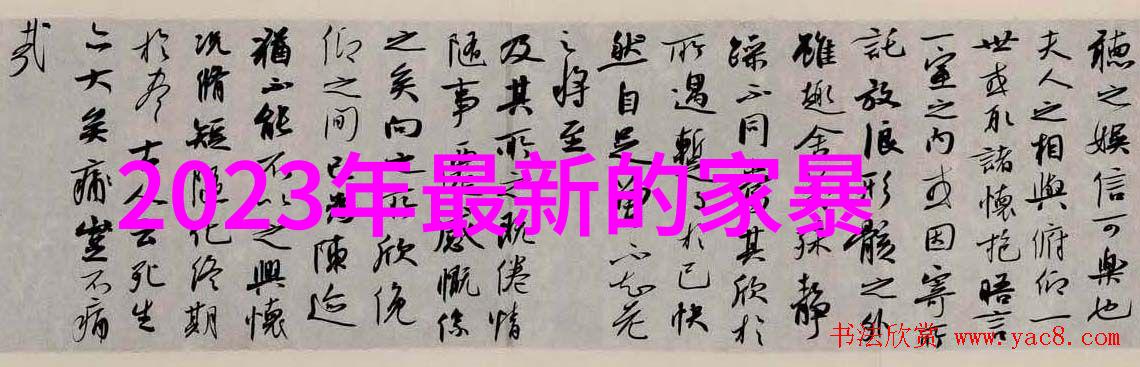 聽之娱信可樂也
夫人之相與俯仰一
世或取諸懷抱晤言
一室之内或因寄所
託放浪形骸之外
雖趣舍殊靜
躁不同當其欣於
所遇暫得於己快
然自足不知老
之將至
及其所之既倦情
隨事遷感慨係
之矣向之所欣俛
仰之間已為陳迹
猶不能不以之興懷
況脩短隨化終期
於盡古人云死生
亦大矣痛豈不痛
哉
2023年最新的家暴
书法欣赏 www.yac8.com